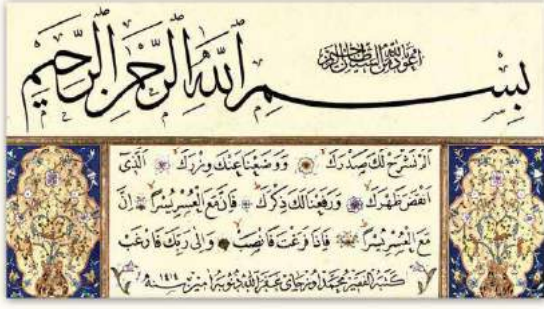 أعوذ بالله من الشيطان الرجيم
بِسْمِ اللَّهِ الرَّحْمَنِ الرَّحِيمِ
أَلَمْ نَشْرَحْ لَكَ صَدْرَكَ وَوَضَعْنَا عَنْكَ وِزْرَكَ الَّذِى
أَنْقَضَ ظَهْرَكَ وَرَفَعْنَا لَكَ ذِكْرَكَ فَإِنَّ مَعَ الْعُسْرِ يُسْرًا إِنَّ
مَعَ الْعُسْرِ يُسْرًا فَإِذَا فَرَغْتَ فَانْصَبْ وَإِلَى رَبِّكَ فَارْغَبْ
كتبه الفقير محمد اوزچاى غفر الله ذنوبه آمين سنه ١٤١٤